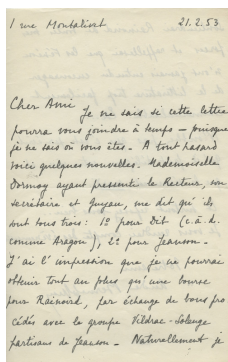 1 rue Montalivet 21.2.53
Cher Ami
Je ne sais si cette lettre
pourra vous joindre à temps — puisque
je ne sais où vous êtes. A tout hasard
voici quelques nouvelles. Mademoiselle
Dormoy ayant pressenti le Recteur, son
secrétaire et Guyau, me dit qu'ils
sont tous trois : 1º pour Dit (c.à.d.
comme Aragon), 2º pour Jeanson.
J'ai l'impression que je ne pourrai
obtenir tout au plus qu'une bourse
pour Rainoird, par échange de bons pro
cédés avec le groupe Vildrac-
partisans de Jeanson. — Naturellement je